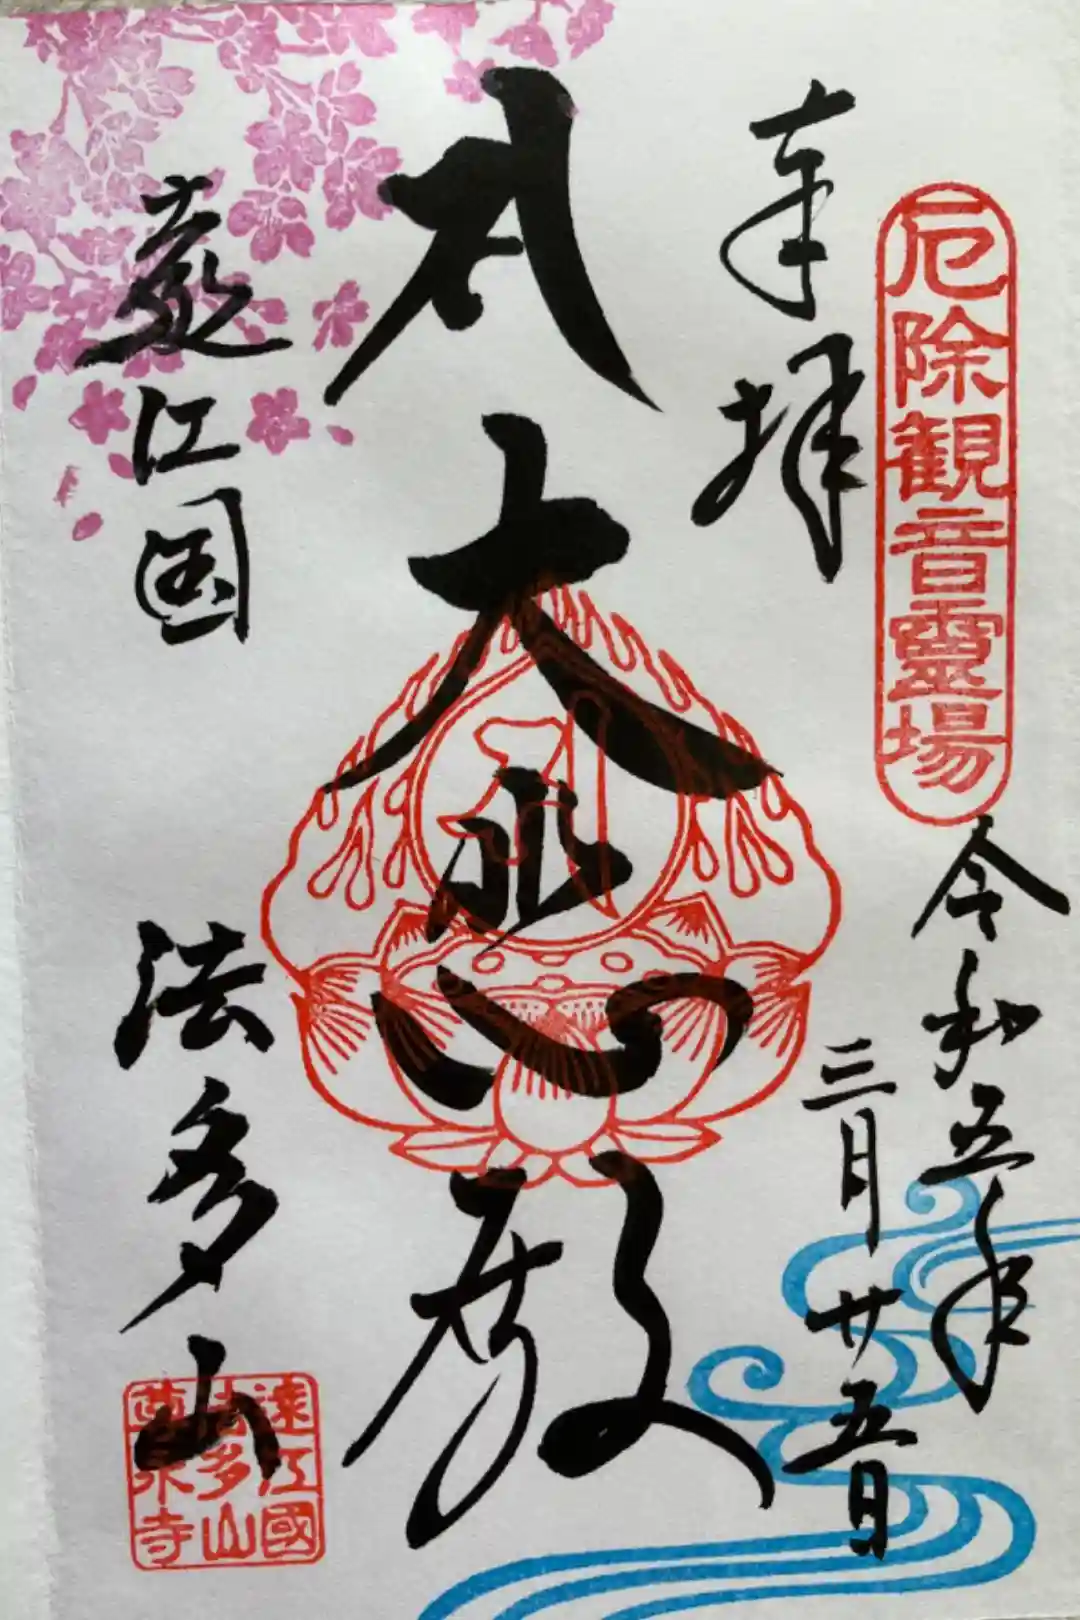 厄除観音霊場
奉拝
令和五年
三月廿五日
大悲殿
遠江国
法多山
遠江國
法多山
尊永寺